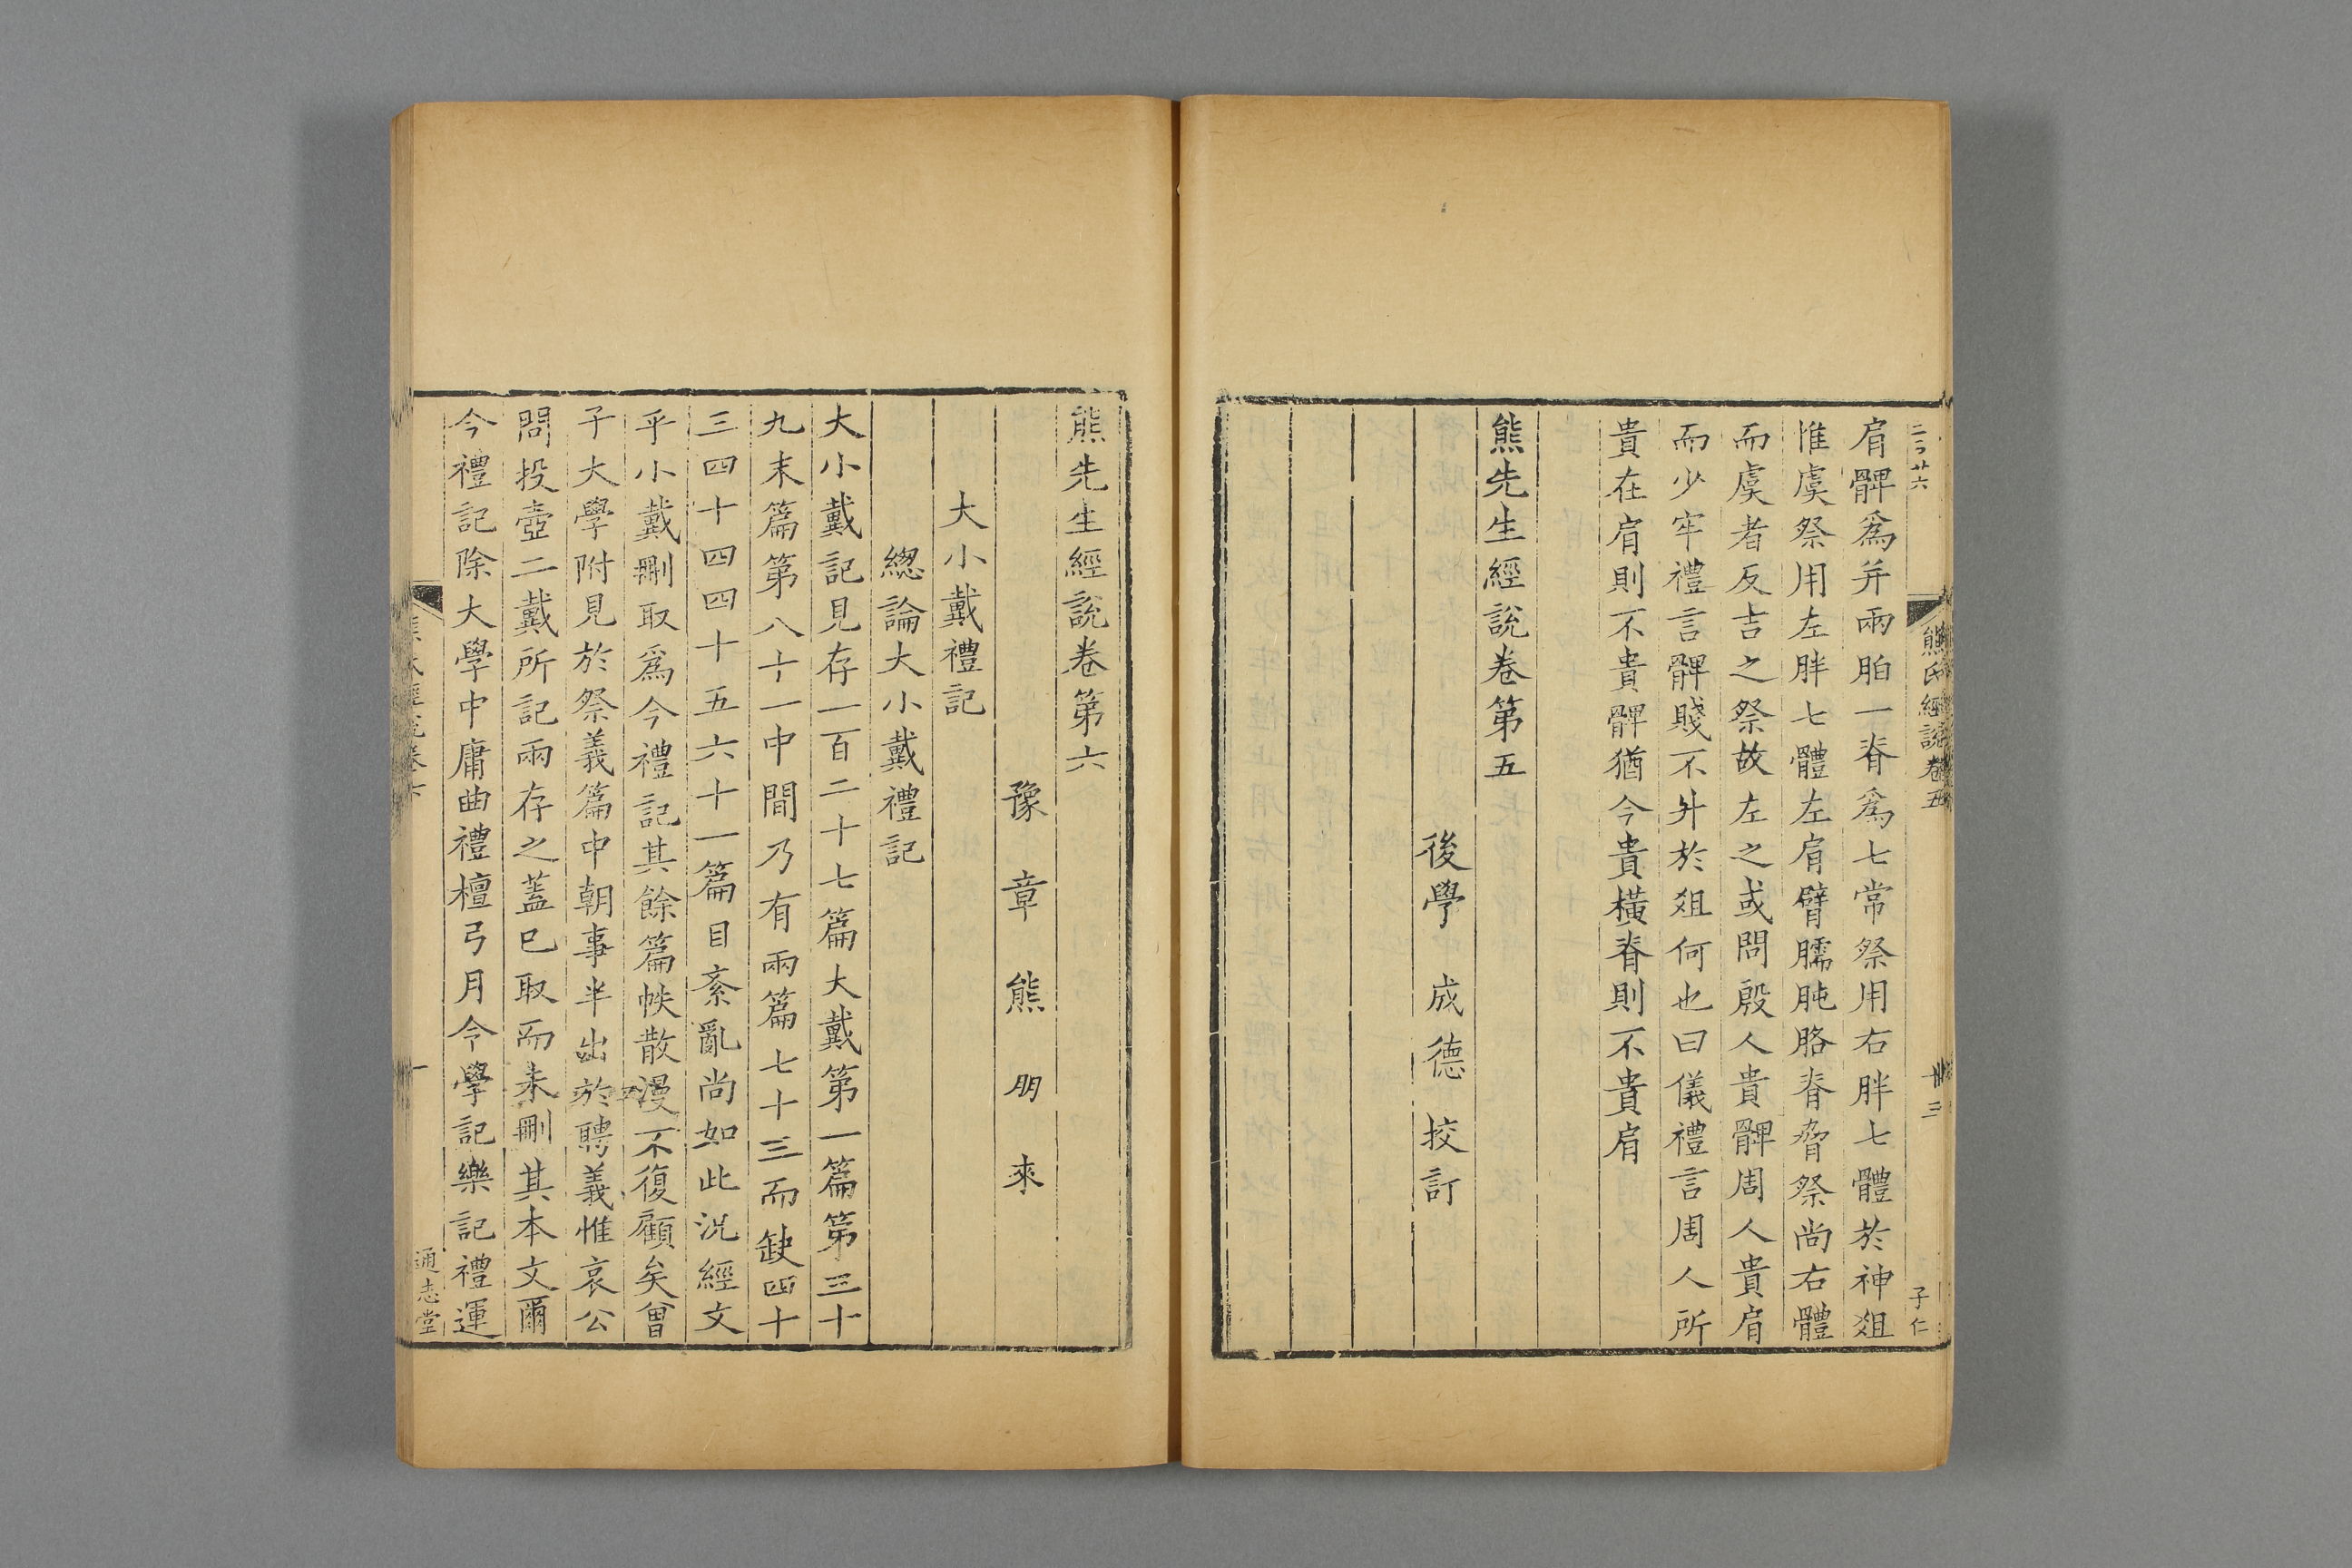 二百廿六
熊氏經說卷五
廿三
子仁
肩髀爲并兩胉一脊爲七常祭用右胖七體於神俎
惟虞祭用左胖七體左肩臂臑肫胳脊脅祭尚右體
而虞者反吉之祭故左之或問殷人貴髀周人貴肩
而少牢禮言髀賤不升於俎何也曰儀禮言周人所
貴在肩則不貴髀猶今貴橫脊則不貴肩
熊先生經說卷第五
後學 成德 挍訂
熊先生經說卷第六
豫章熊朋來
大小戴禮記
緫論大小戴禮記
大小戴記見存一百二十七篇大戴第一篇第三十
九末篇第八十一中間乃有兩篇七十三而缺四十
三四十四四十五六十一篇目紊亂尚如此況經文
乎小戴刪取爲今禮記其餘篇帙散漫不復顧矣曾
子大學附見於祭義篇中朝事半出於聘義惟哀公
問投壺二戴所記兩存之蓋已取而未刪其本文爾
今禮記除大學中庸曲禮檀弓月令學記樂記禮運
一
通志堂